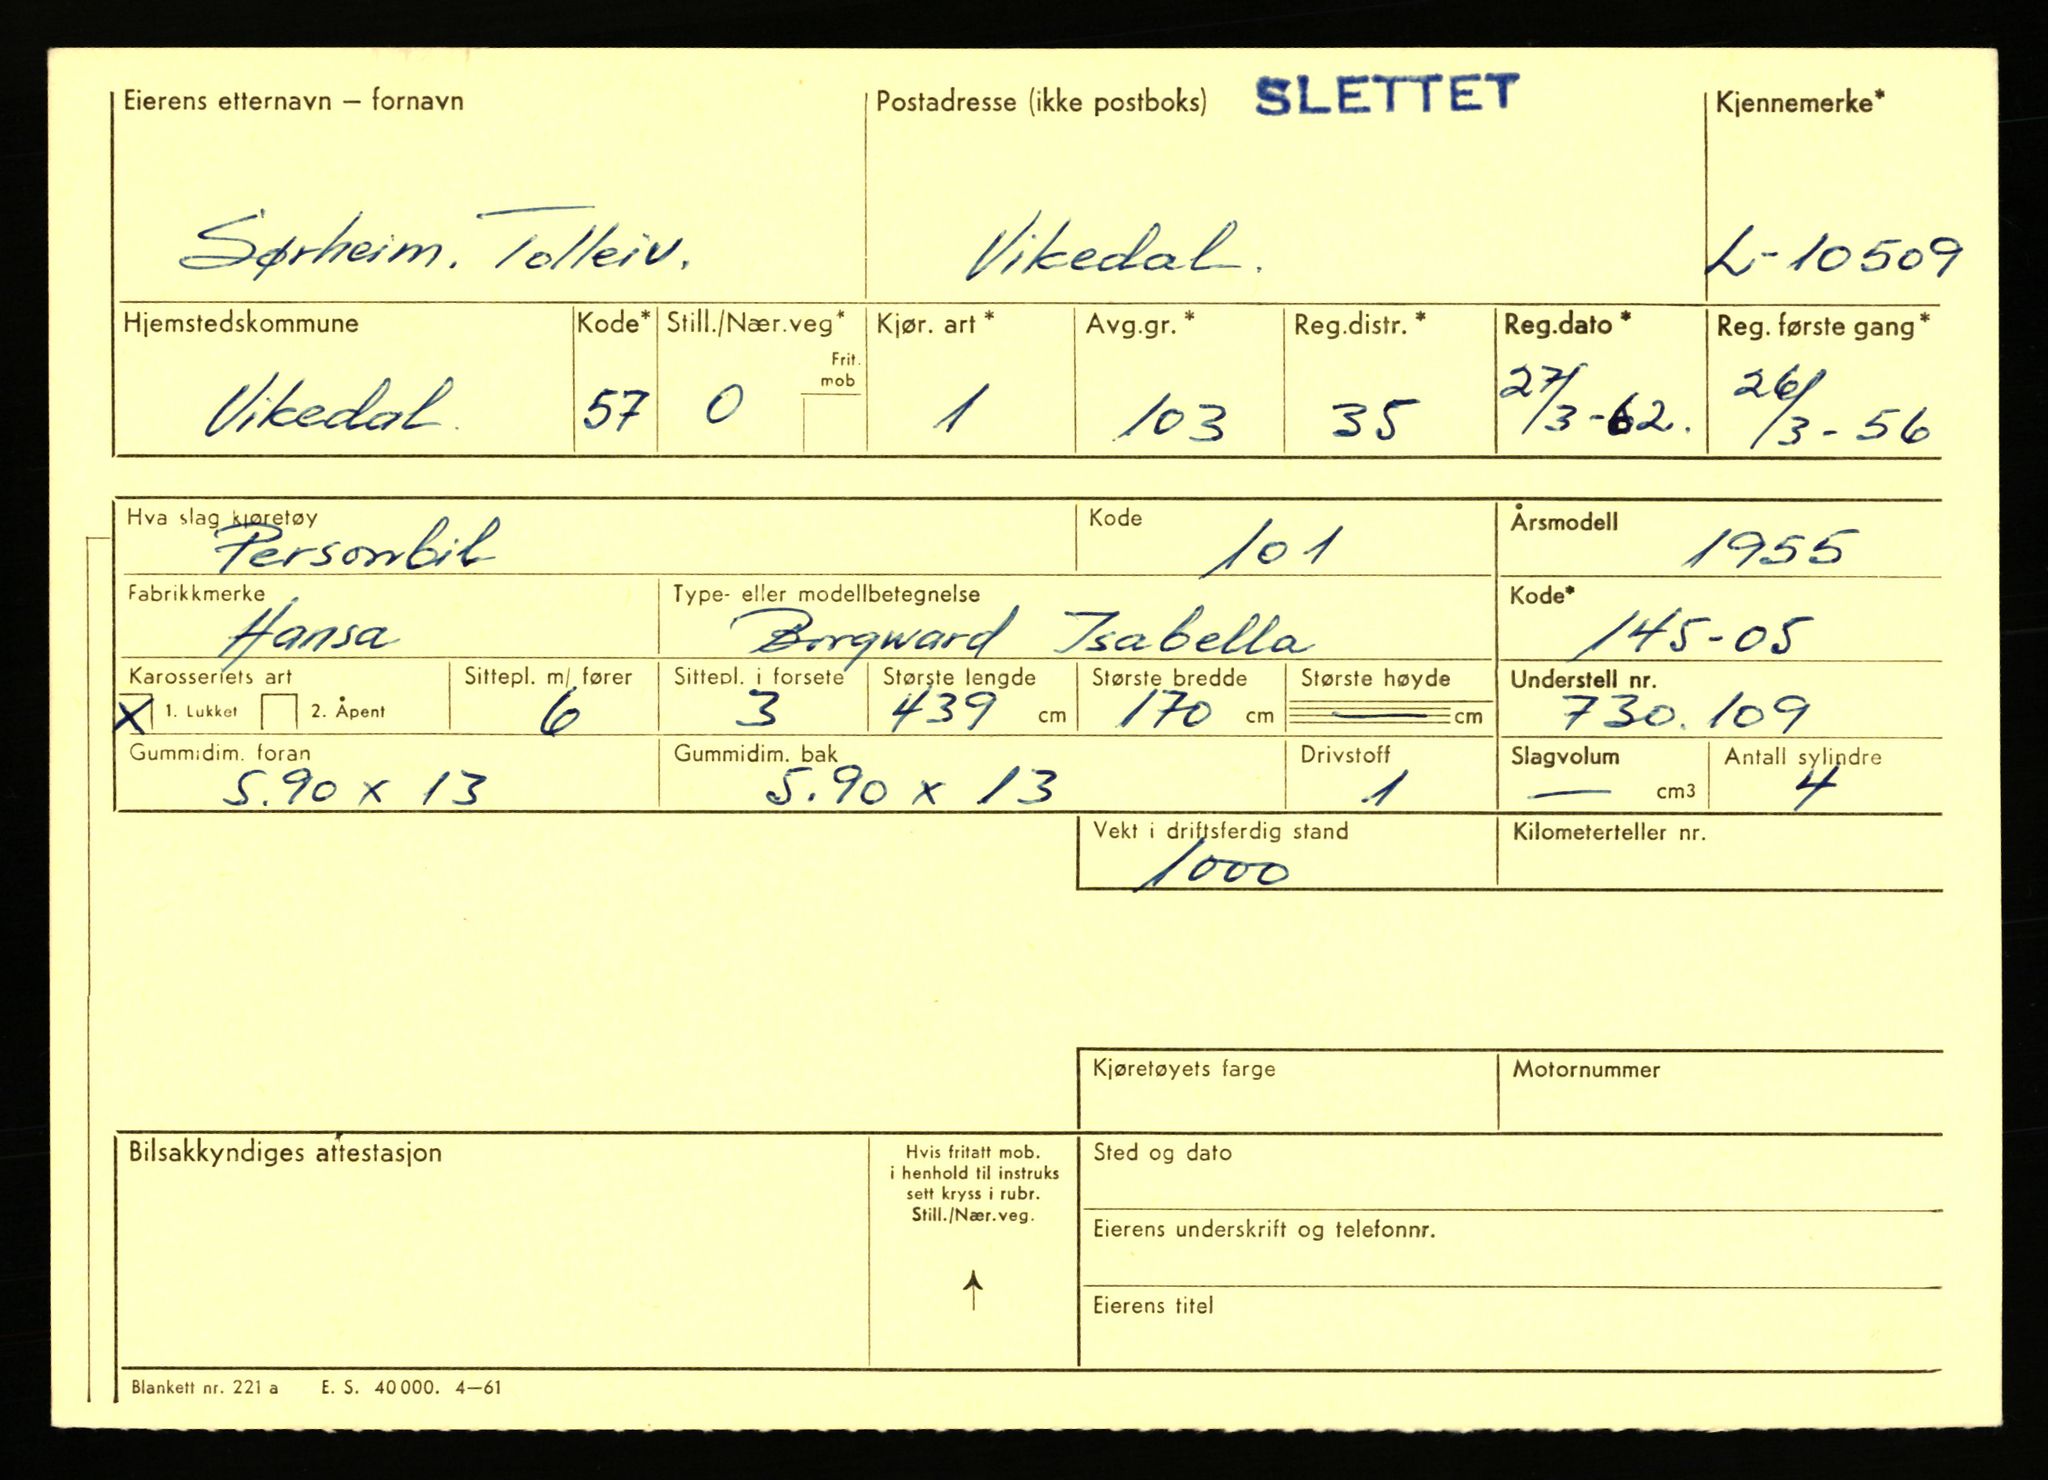 Eierens etternavn – fornavn Postadresse (ikke postboks) SLETTET Kjennemerke*
Sørheim. Tolleiv. Vikedal. L-10509
Hjemstedskommune Kode* Still./Nær.veg* Kjør. art * Avg.gr. * Reg.distr. * Reg.dato * Reg. første gang*
Frit. mob
Vikedal. 57 0 1 103 35 27/3-62. 26/3-56
Hva slag kjøretøy Kode Årsmodell
Personbil 101 1955
Fabrikkmerke Type- eller modellbetegnelse Kode*
Hansa Borgward Isabella 145-05
Karosseriets art Sittepl. m/ fører Sittepl. i forsete Største lengde Største bredde Største høyde Understell nr.
X 1. Lukket 2. Åpent 6 3 439 cm 170 cm — cm 730.109
Gummidim. foran Gummidim. bak Drivstoff Slagvolum Antall sylindre
5.90 x 13 5.90 x 13 1 — cm3 4
Vekt i driftsferdig stand Kilometerteller nr.
1000
Kjøretøyets farge Motornummer
Bilsakkyndiges attestasjon
Hvis fritatt mob.
i henhold til instruks
sett kryss i rubr.
Still./Nær.veg.
Sted og dato
Eierens underskrift og telefonnr.
Eierens titel
Blankett nr. 221 a E. S. 40 000. 4–61